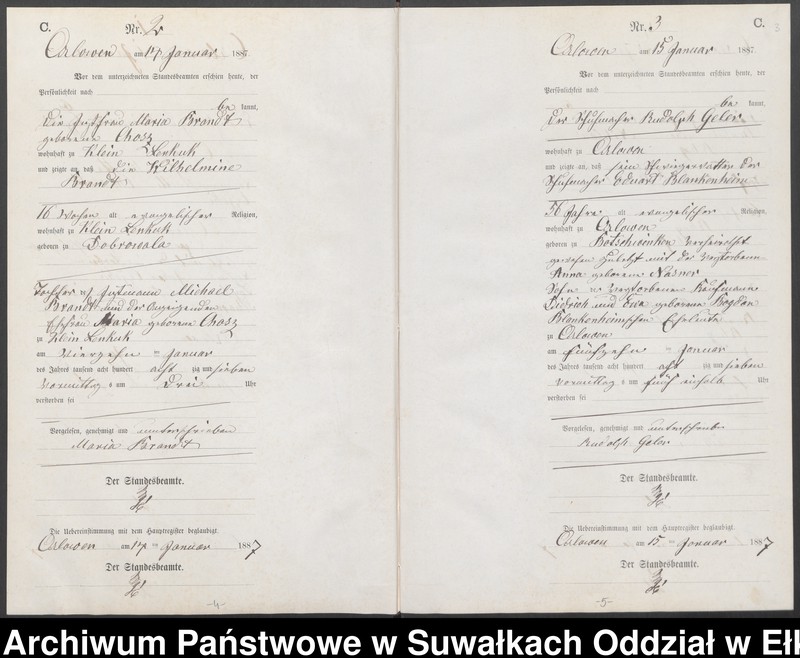 C. Nr. 2
Orlowen am 14 Januar 1887
Vor dem unterzeichneten Standesbeamten erschien heute, der
Persönlichkeit nach
be kannt,
die Instfrau Maria Brandt
geborene Chosz
wohnhaft zu Klein Lenkuk
und zeigte an, daß die Wilhelmine
Brandt
16 Wochen alt evangelischer Religion,
wohnhaft zu Klein Lenkuk
geboren zu Dobrowala
Tochter des Instmann Michael
Brandt und der Anzeigenden
Ehefrau Maria geborene Chosz
zu Klein Lenkuk
am Vierzehn = Januar
des Jahres tausend acht hundert acht zig und sieben
Vormittag s um Drei Uhr
verstorben sei
Vorgelesen, genehmigt und unterschrieben
Maria Brandt
Der Standesbeamte.
Die Uebereinstimmung mit dem Hauptregister beglaubigt.
Orlowen am 14 = Januar 1887
Der Standesbeamte.
-4-
Nr. 3 C. 3
Orlowen am 15 Januar 1887.
Vor dem unterzeichneten Standesbeamten erschien heute, der
Persönlichkeit nach
be kannt,
der Schuhmacher Rudolph Geler
wohnhaft zu Orlowen
und zeigte an, daß sein Schwiegervatter der
Schuhmacher Eduart Blankenheim
56 Jahre alt evangelischer Religion,
wohnhaft zu Orlowen
geboren zu verheirathet
gewesen zuletzt mit der verstorbenen
Anna geborene
Sohn des verstorbenen Kaufmann
Didrich und Eva geborene Bogdan
Blankenheimschen Eheleute
zu Orlowen
am fünfzehn = Januar
des Jahres tausend acht hundert acht zig und sieben
Vormittag s um fünf einhalb Uhr
verstorben sei
Vorgelesen, genehmigt und unterschrieben
Rudolph Geler
Der Standesbeamte.
Die Uebereinstimmung mit dem Hauptregister beglaubigt.
Orlowen am 15 = Januar 1887
Der Standesbeamte.
-5-
Archiwum Państwowe w Suwałkach Oddział w Ełk